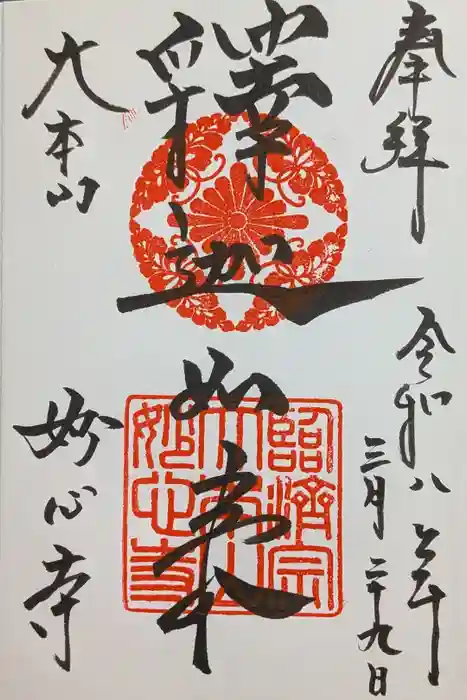 奉拝
令和八年
三月二十九日
釋迦如来
大本山
妙心寺
臨済宗
大本山
妙心寺